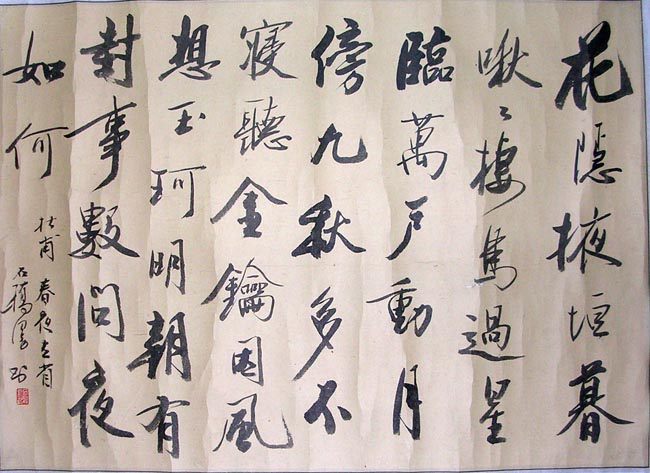 花隱掖垣暮
啾〻棲鳥過星
臨萬戶動月
傍九秋多不
寢聽金鑰因風
想玉珂明朝有
封事數問夜
如何
杜甫 春夜左
石橋墨